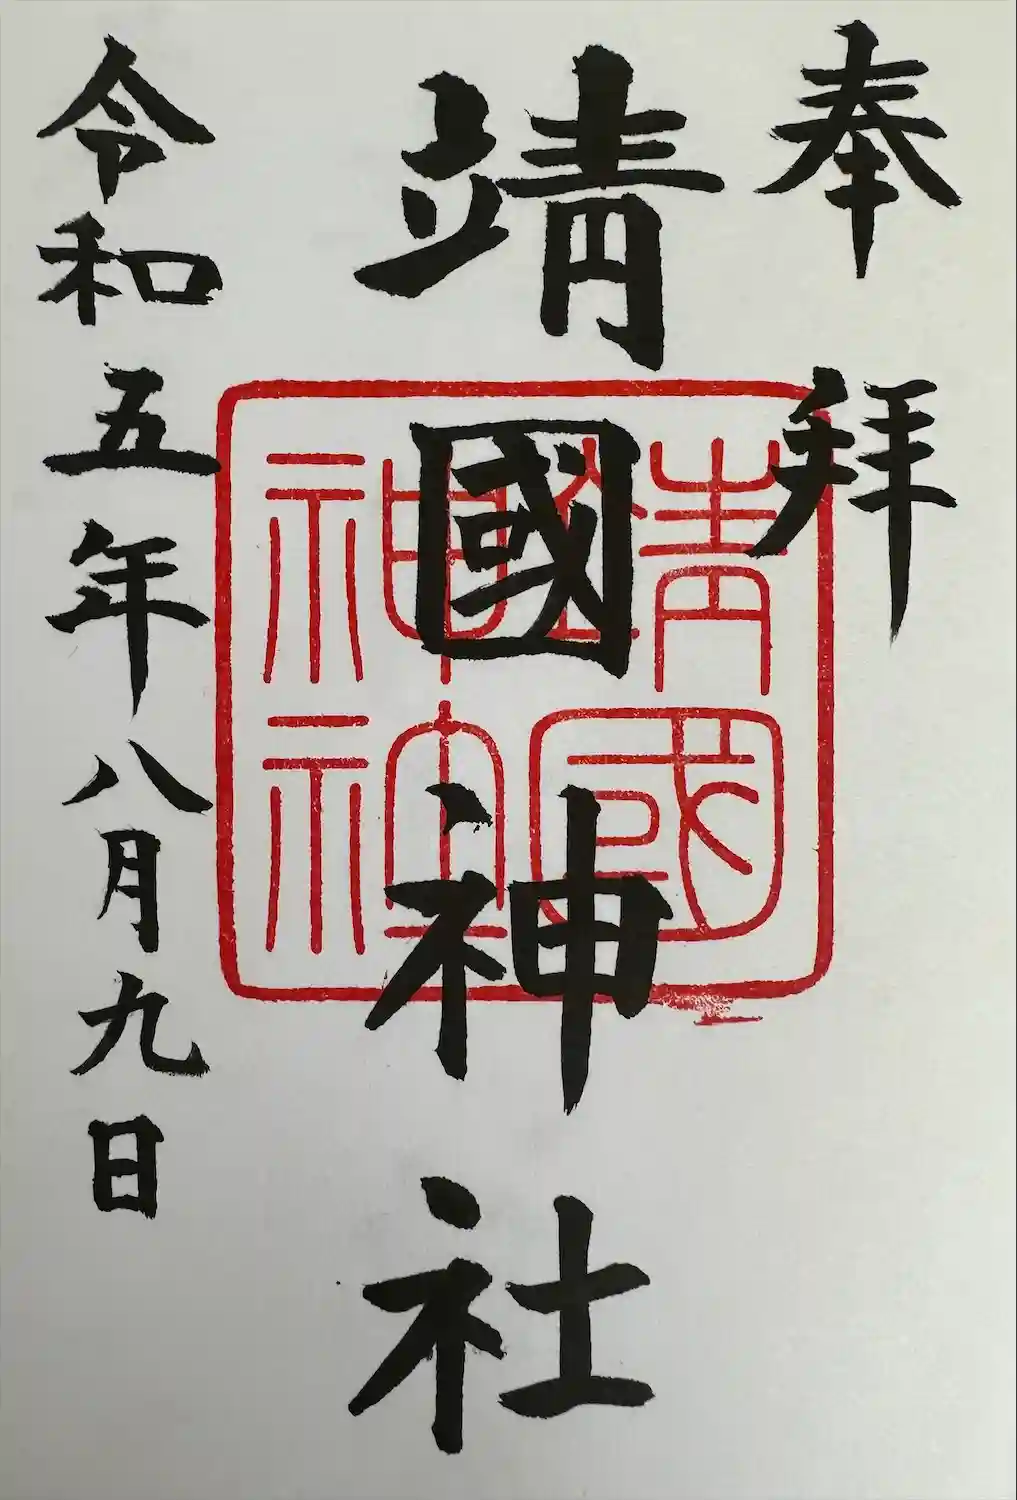 奉拝
靖國神社
靖國
神社
令和五年八月九日